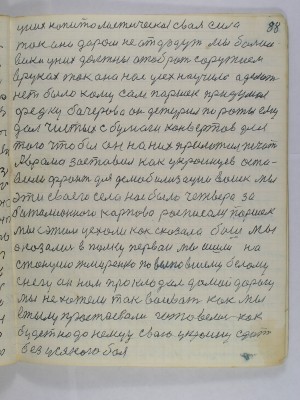 98
у них капиталистическая свая сила
так ани даром не атдадут мы болше
вика у них должны отоброт саружием
в руках так она нас усех научыло а делат
нет было кому сам паршок придумал
федку бачерова он дежурил по роты ему
дал чистых с бумаги конвертов для
того что бы он на них прилотил печат
Абрама заставил как украинцев оста-
вит фронт для демобилизации воших мы
эти сваего села нас было четвера за
баталионного картово росписали паршок
мы сэтим уехали как сказала баш Мы
оказалис в полку первай мы ишли на
станцию жмиренко по выповшиму белому
снегу он нам прокладвал домой дорогу
мы не хотели так воеват как мы
в тылу простаевали гатовели как
будет надо немцу сваю украину сдат
без всякого боя